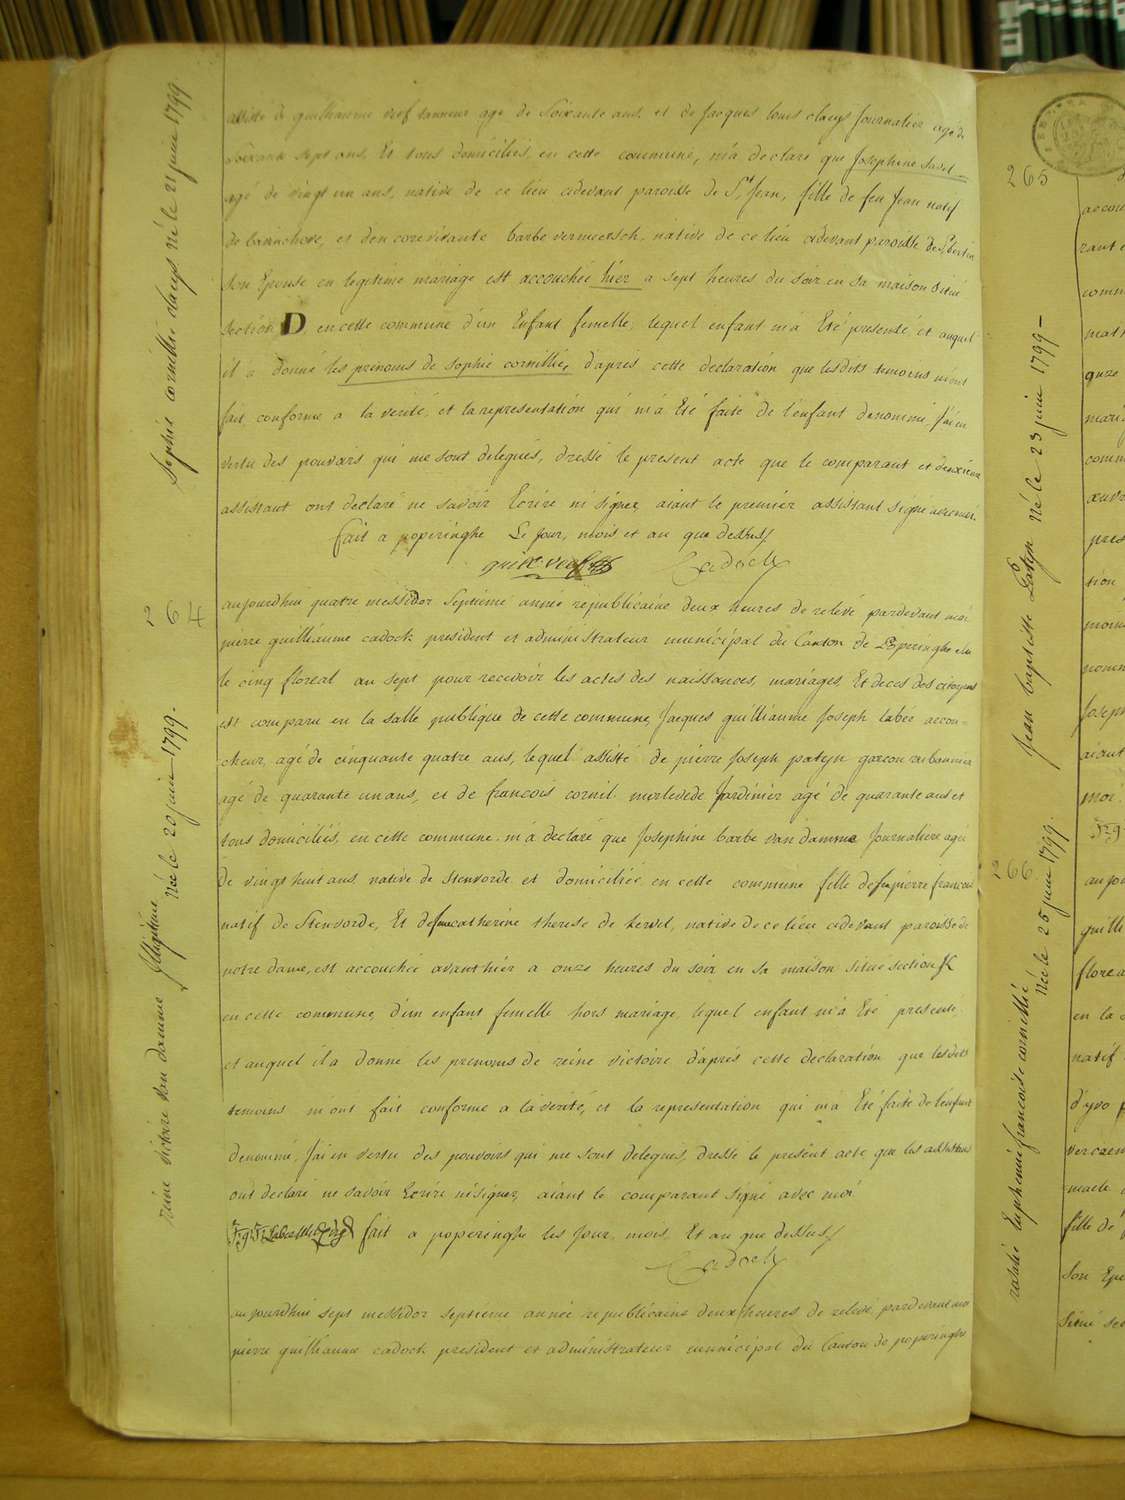 assisté de guilliaume vief tanneur agé de Soixante ans, et de Jacques louis claeys Journalier agé de
Soixante sept ans, Et tous domiciliés, en cette commune, m'a declaré que Josephine
agé de vingt un ans, native de ce lieu cidevant paroisse de St Jean, fille de feu Jean natif
de et d'encore vivante barbe vermeersch, native de ce lieu cidevant paroisse de St bertin
son Epouse en legitime mariage est accouchée hier a sept heures du soir en sa maison situé
section D en cette commune d'un Enfant femelle, lequel enfant m'a Eté presenté, et auquel
il a donné les prenoms de sophie cornillie, d'aprés cette declaration que lesdits temoins m'ont
fait conforme a la verité, et la representation qui m'a Eté faite de l'enfant denommé, J'ai en
vertu des pouvoirs qui me sont delegués, dressé le present acte que le comparant et deuxieme
assistant ont declaré ne savoir Ecrire ni signer, aiant le premier assistant signé avec moi.
fait a poperinghe Le jour, mois et an que dessus/
guille vief Cadock
264
aujourdhui quatre messidor Septieme année republicaine deux heures de relevé pardevant moi
pierre guilliaume cadock president et administrateur municipal du Canton de Poperinghe elu
le cinq floreal an sept pour recevoir les actes des naissances, mariages Et deces des citoyens
est comparu en la salle publique de cette commune, Jacques guilliaume Joseph labée accou-
cheur, agé de cinquante quatre ans, lequel assisté de pierre Joseph patyn garcon rubannier
agé de quarante un ans, et de francois cornil merlevede Jardinier agé de quarante ans et
tous domiciliés, en cette commune. m'a declaré que Josephine barbe van damme Journaliere agée
de vingt huit ans native de Stenvorde et domiciliée en cette commune fille de feu pierre francois
natif de Stenvorde, Et de feue catherine therese de kervel, native de ce lieu cidevant paroisse de
notre dame, est accouchée avant hier a onze heures du soir en sa maison situé section K
en cette commune, d'un enfant femelle hors mariage, lequel enfant m'a Eté presenté,
et auquel il a donné les prenoms de reine victoire d'aprés cette declaration que lesdits
temoins m'ont fait conforme a la verité, et la representation qui m'a Eté faite de l'enfant
denommé, J'ai en vertu des pouvoirs qui me sont delegués, dressé le present acte que les assistans
ont declaré ne savoir Ecrire ni signer, aiant le comparant signé avec moi
fait a poperinghe les jour, mois, Et an que dessus/
Cadock
aujourdhui sept messidor septieme année republicaine deux heures de relevé, pardevant moi
pierre guilliaume cadock president et administrateur municipal du Canton de poperinghe
Sophie cornillie claeys Né le 21 juin 1799
reine victoire van damme Illegitime Née le 20 juin 1799.
265
Jean baptiste Patyn Né le 23 juin 1799
266
rosalie Euphemie francoise cornillie
Née le 25 juin 1799.
accou
comm
mat
quze
mari
comm
pres
tion
nomm
Joseph
aiant
moi.
aujou
guilli
florea
en la
natif
d'yvo
fille de
son Epo
situé sec